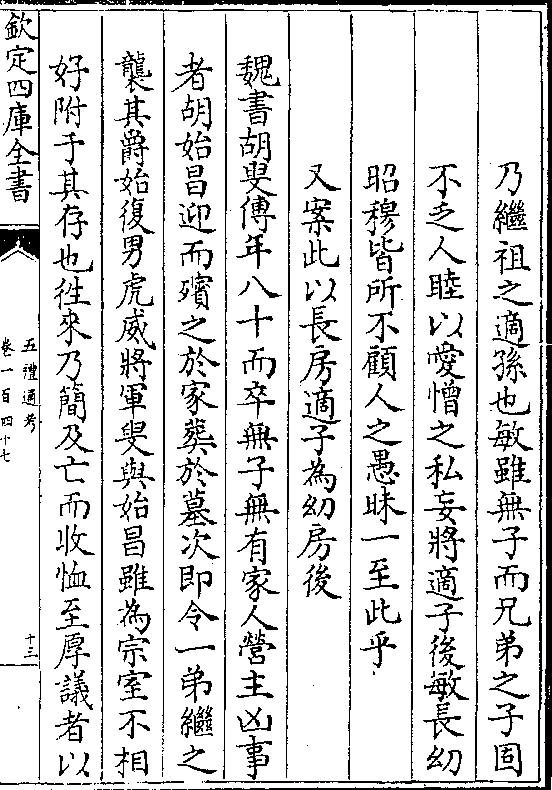 乃繼祖之適孫也敏雖無子而兄弟之子固
不乏人睦以愛憎之私妄將適子後敏長幼
昭穆皆所不顧人之愚昧一至此乎
又案此以長房適子為幼房後
魏書胡叟傳年八十而卒無子無有家人營主凶事
者胡始昌迎而殯之於家葬於墓次即令一弟繼之
襲其爵始復男虎威將軍叟與始昌雖為宗室不相
好附于其存也徃來乃簡及亡而收恤至厚議者以
欽定四庫全書
五禮通考
卷一百四十七
十三